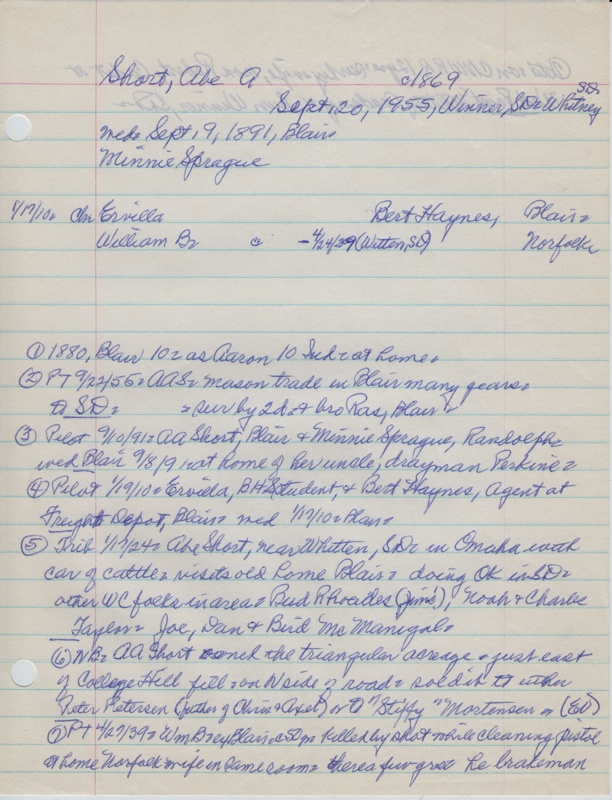 Short, Abe A c1869 SD
Sept, 20, 1955, Winner, SD= Whitney
med= Sept, 9, 1891, Blair=
Minnie Sprague
1/17/10= Ch= Ervilla Bert Haynes, Blair=
William B= - 4/24/39 (Witten, SD) Norfolk
① 1880, Blair 10= as Aaron 10 Ind= at home=
② PT 9/22/55= AAS= mason trade in Blair many years=
SD= = sur by 2d= & bro Ras, Blair=
③ Pilot 9/10/91= AA Short, Blair & Minnie Sprague, Randolph=
wed Blair 9/8/91= at home of her uncle, drayman Perkins=
④ Pilot 1/19/10= Ervilla, BH Student, & Bert Haynes, agent at
Freight Depot, Blair= wed 1/17/10=
⑤ Trib 1/17/24= Abe Short, near Whitten, SD= in Omaha with
car of cattle= visits old home Blair= doing OK in SD=
other WC folks in area= Bud Rhoades (Jim's), Noah & Charles
Taylor= Joe, Dan & Bird McManigal=
⑥ NB= AA Short owned the triangular acreage = just east
of College Hill = on N side of road= sold it to either
Peter Petersen (father of Chris & Axel) or to "Stiffy" Mortensen = (Ed)
⑦ PT 4/27/39= Wm B= ex Blair= killed by shot while cleaning pistol
@ home Norfolk= wife in same room= he brakeman